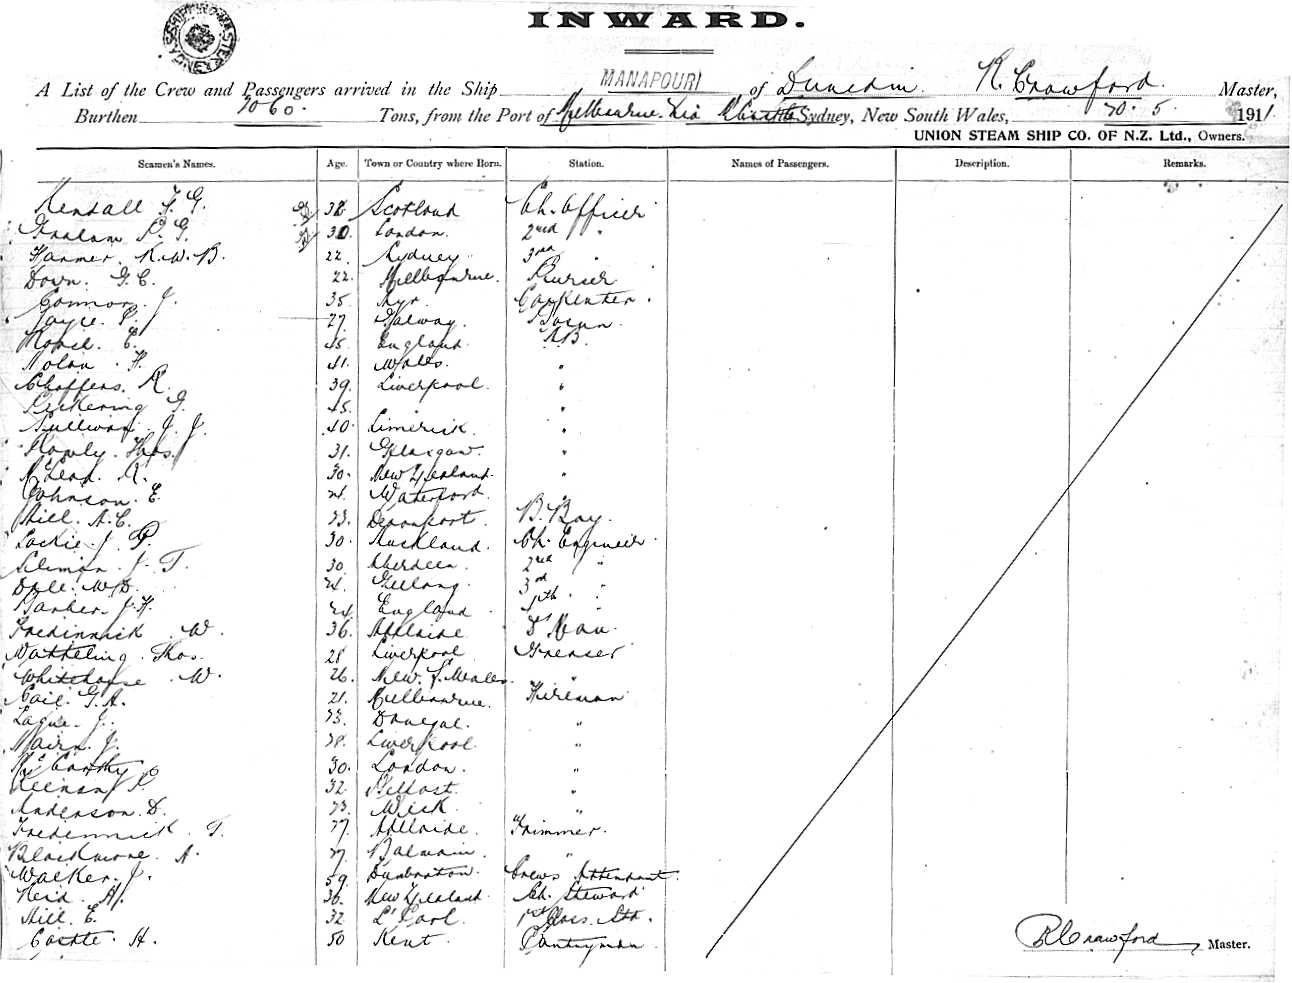 INWARD.
A List of the Crew and Passengers arrived in the Ship MANAPOURI of Dunedin R. Crawford Master,
Burthen 2060 Tons, from the Port of Melbourne via Sydney, New South Wales, 20. 5 1911
UNION STEAM SHIP CO. OF N.Z. Ltd., Owners.
Seamen's Names. Age. Town or Country where Born. Station. Names of Passengers. Description. Remarks.
Kendall F. G. 38 Scotland Ch. Officer
Graham P. G. 30 London. 2nd "
Hanmer. R. W. B. 22 Sydney 3rd
Down. G. C. 22. Melbourne. Purser
Connor. J. 35 Ayr. Carpenter.
Joyce. P. 27 Galway. Bosun.
E. 45 England. AB.
Nolan. H. 41. Wales. "
Chaffers. R. 39. Liverpool. "
Pickering G. 45. "
Sullivan. J. J. 40. Limerick. "
Thos. 31. Glasgow. "
R. 30. New Zealand. "
Johnson. E. 24. Waterford.
Hill. A. C. 23. Devonport. B. Boy.
Lackie. J. P. 30. Auckland. Ch. Engineer
J. T. 30 Aberdeen. 2nd "
Dale. W. D. 24. Geelong. 3rd "
Barber. J. H. 24. England 4th. "
Tredinnick W. 36. Adelaide D'Man.
Watheling. Thos. 28 Liverpool Greaser
Whitehouse W. 26. New. S. Wales. "
Cail. G. A. 21. Melbourne. Fireman
Lague. J. 23. Donegal. "
Nairn. J. 28. Liverpool. "
McCarthy 30. London. "
Keenan P. 32. Belfast. "
Anderson. D. 23. Wick. "
Tredennick. T. 27 Adelaide. Trimmer.
Blackmore. A. 27. Balmain. "
Walker. J. 59. Dumbarton. Crews Attendant.
Reid. A. 36. New Zealand. Ch. Steward
Hill. E. 32 L'Pool. 1st Class. Std.
Castle. H. 50 Kent. Pantryman
R Crawford Master.